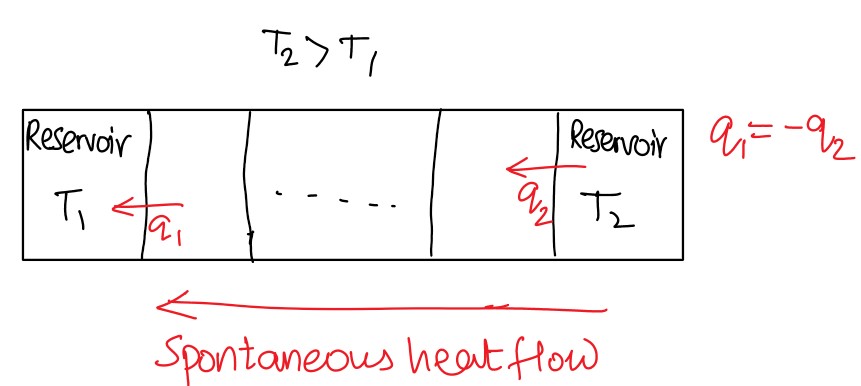 T₂ > T₁
Reservoir
T₁
q₁
- - - - -
q₂
Reservoir
T₂
q₁ = -q₂
Spontaneous heat flow